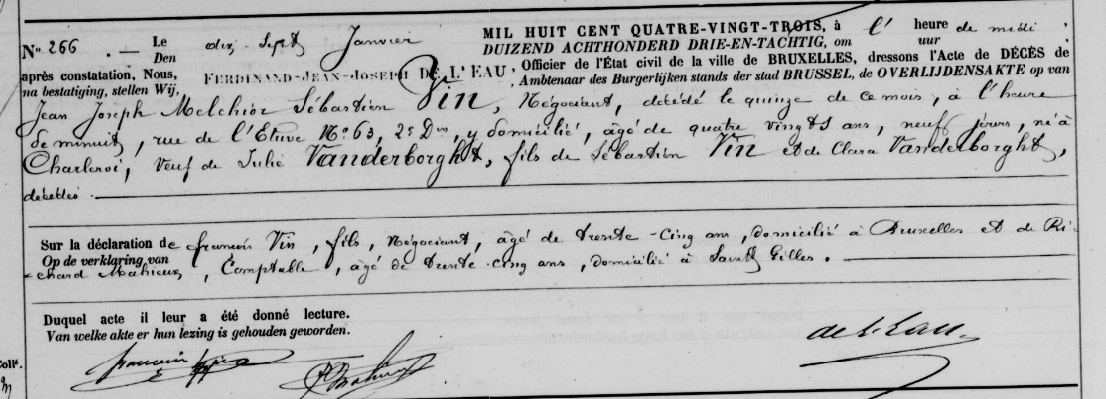 N° 266. — Le dix Sept Janvier MIL HUIT CENT QUATRE-VINGT-TROIS, à l' heure de midi,
Den DUIZEND ACHTHONDERD DRIE-EN-TACHTIG, om uur
après constatation, Nous, FERDINAND-JEAN-JOSEPH DE L'EAU, Officier de l'État civil de la ville de BRUXELLES, dressons l'Acte de DÉCÈS de
na bestatiging, stellen Wij, Ambtenaar des Burgerlijken stands der stad BRUSSEL, de OVERLIJDENSAKTE op van
Jean Joseph Melchior Sébastien Vin, Négociant, décédé le quinze de ce mois, à l'heure
de minuit, rue de l'Etuve N° 63, 2e Don, y domicilié, âgé de quatre vingts ans, neuf jours, né à
Charleroi, Veuf de Julie Vanderborght, fils de Sébastien Vin et de Clara Vanderborght,
décédés.
Sur la déclaration de françois Vin, fils, Négociant, âgé de trente-cinq ans, domicilié à Bruxelles et de Ri-
Op de verklaring van -chard Mahieux, Comptable, âgé de trente-cinq ans, domicilié à Saint Gilles.
Duquel acte il leur a été donné lecture.
Van welke akte er hun lezing is gehouden geworden.
de L'Eau
Coll<sup>é</sup>.